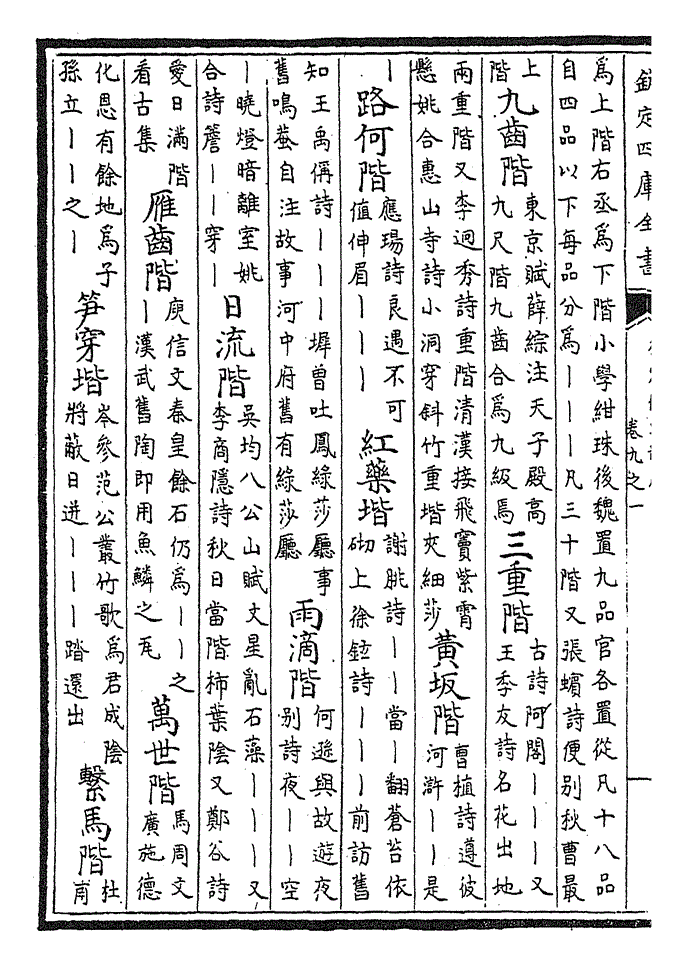 欽定四庫全書
卷九之一
為上階右丞為下階小學紺珠後魏置九品官各置從凡十八品
自四品以下每品分為丨丨丨凡三十階又張蠙詩便别秋曹最
上
階
九齒階
東京賦薛綜注天子殿高
九尺階九齒合為九級焉
三重階
古詩阿閣丨丨丨又
王季友詩名花出地
兩重階又李迥秀詩重階清漢接飛竇紫霄
懸姚合惠山寺詩小洞穿斜竹重堦夾細莎
黄坂階
曹植詩遵彼
河滸丨丨是
丨
路何階
應瑒詩良遇不可
值伸眉丨丨丨
紅藥堦
謝朓詩丨丨當丨翻蒼苔依
砌上徐鉉詩丨丨丨前訪舊
知王禹偁詩丨丨丨墀曾吐鳳綠莎廳事
舊鳴蛬自注故事河中府舊有綠莎廳
雨滴階
何遜與故遊夜
别詩夜丨丨空
丨曉燈暗離室姚
合詩簷丨丨穿丨
日流階
吳均八公山賦文星亂石藻丨丨丨又
李商隱詩秋日當階柿葉陰又鄭谷詩
愛日滿階
看古集
雁齒階
庾信文秦皇餘石仍為丨丨之
丨漢武舊陶即用魚鱗之瓦
萬世階
馬周文
廣施德
化恩有餘地為子
孫立丨丨之丨
笋穿堦
岑參范公叢竹歌為君成陰
將蔽日迸丨丨丨踏還出
繫馬階
杜
甫